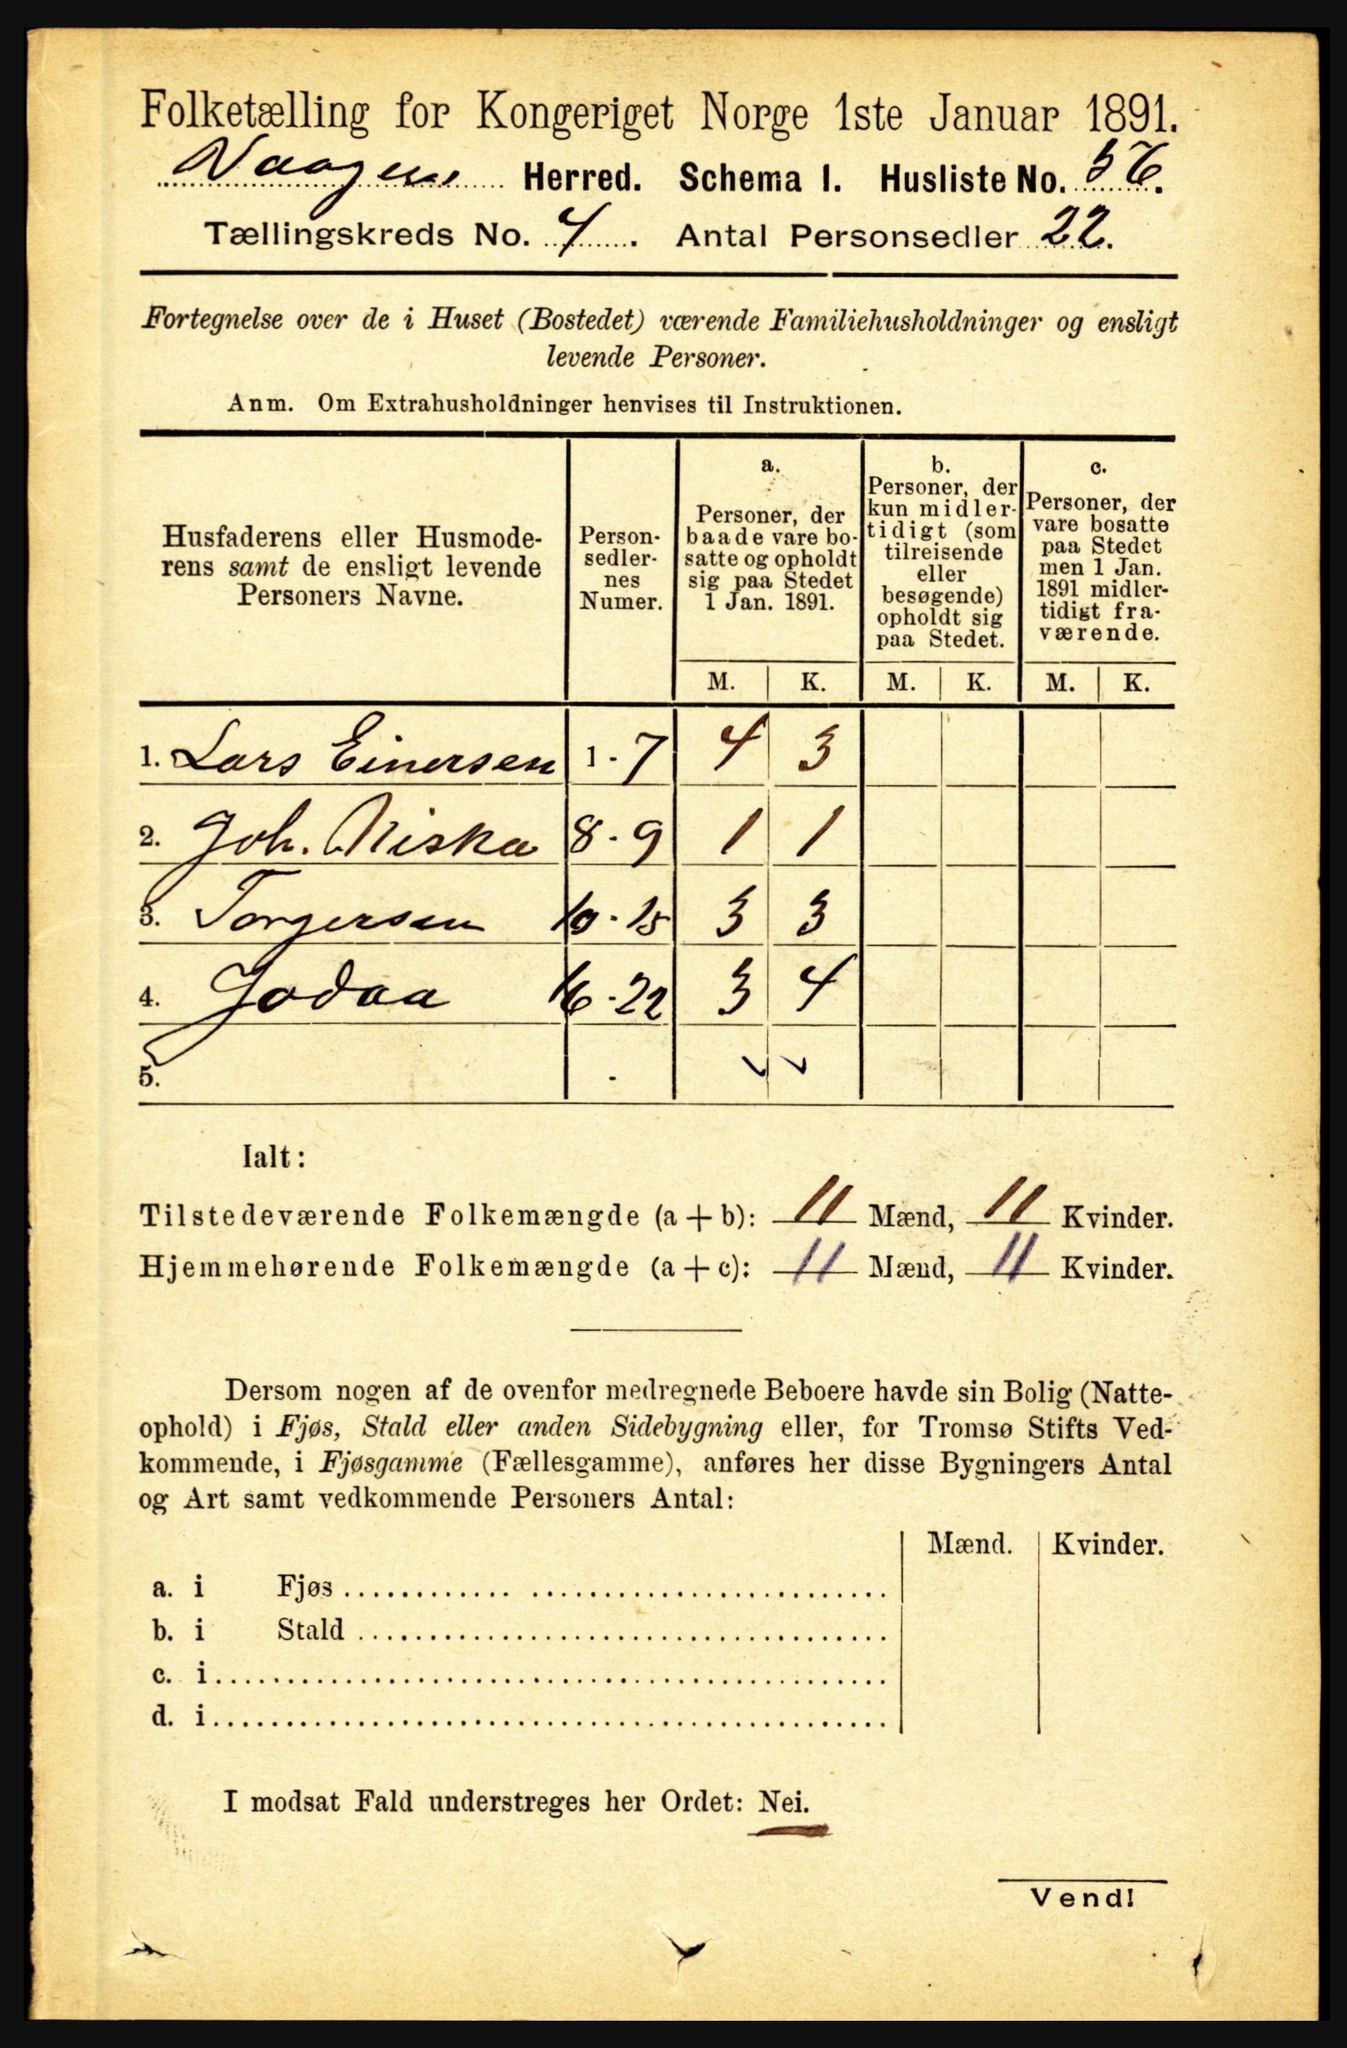 Folketælling for Kongeriget Norge 1ste Januar 1891.
Vaagen Herred. Schema I. Husliste No. 56.
Tællingskreds No. 4. Antal Personsedler 22.
Fortegnelse over de i Huset (Bostedet) værende Familiehusholdninger og ensligt
levende Personer.
Anm. Om Extrahusholdninger henvises til Instruktionen.
Husfaderens eller Husmode-
rens samt de ensligt levende
Personers Navne.
Person-
sedler-
nes
Numer.
a.
Personer, der
baade vare bo-
satte og opholdt
sig paa Stedet
1 Jan. 1891.
b.
Personer, der
kun midler-
tidigt (som
tilreisende
eller
besøgende)
opholdt sig
paa Stedet.
c.
Personer, der
vare bosatte
paa Stedet
men 1 Jan.
1891 midler-
tidigt fra-
værende.
M. K. M. K. M. K.
1. Lars Einersen 1 - 7 4 3
2. Joh. Niska 8 - 9 1 1
3. Torgersen 10 - 15 3 3
4. Jodaa 16 - 22 3 4
5. -
Ialt:
Tilstedeværende Folkemængde (a + b): 11 Mænd, 11 Kvinder.
Hjemmehørende Folkemængde (a + c): 11 Mænd, 11 Kvinder.
Dersom nogen af de ovenfor medregnede Beboere havde sin Bolig (Natte-
ophold) i Fjøs, Stald eller anden Sidebygning eller, for Tromsø Stifts Ved-
kommende, i Fjøsgamme (Fællesgamme), anføres her disse Bygningers Antal
og Art samt vedkommende Personers Antal:
Mænd. Kvinder.
a. i Fjøs
b. i Stald
c. i
d. i
I modsat Fald understreges her Ordet: Nei.
Vend!